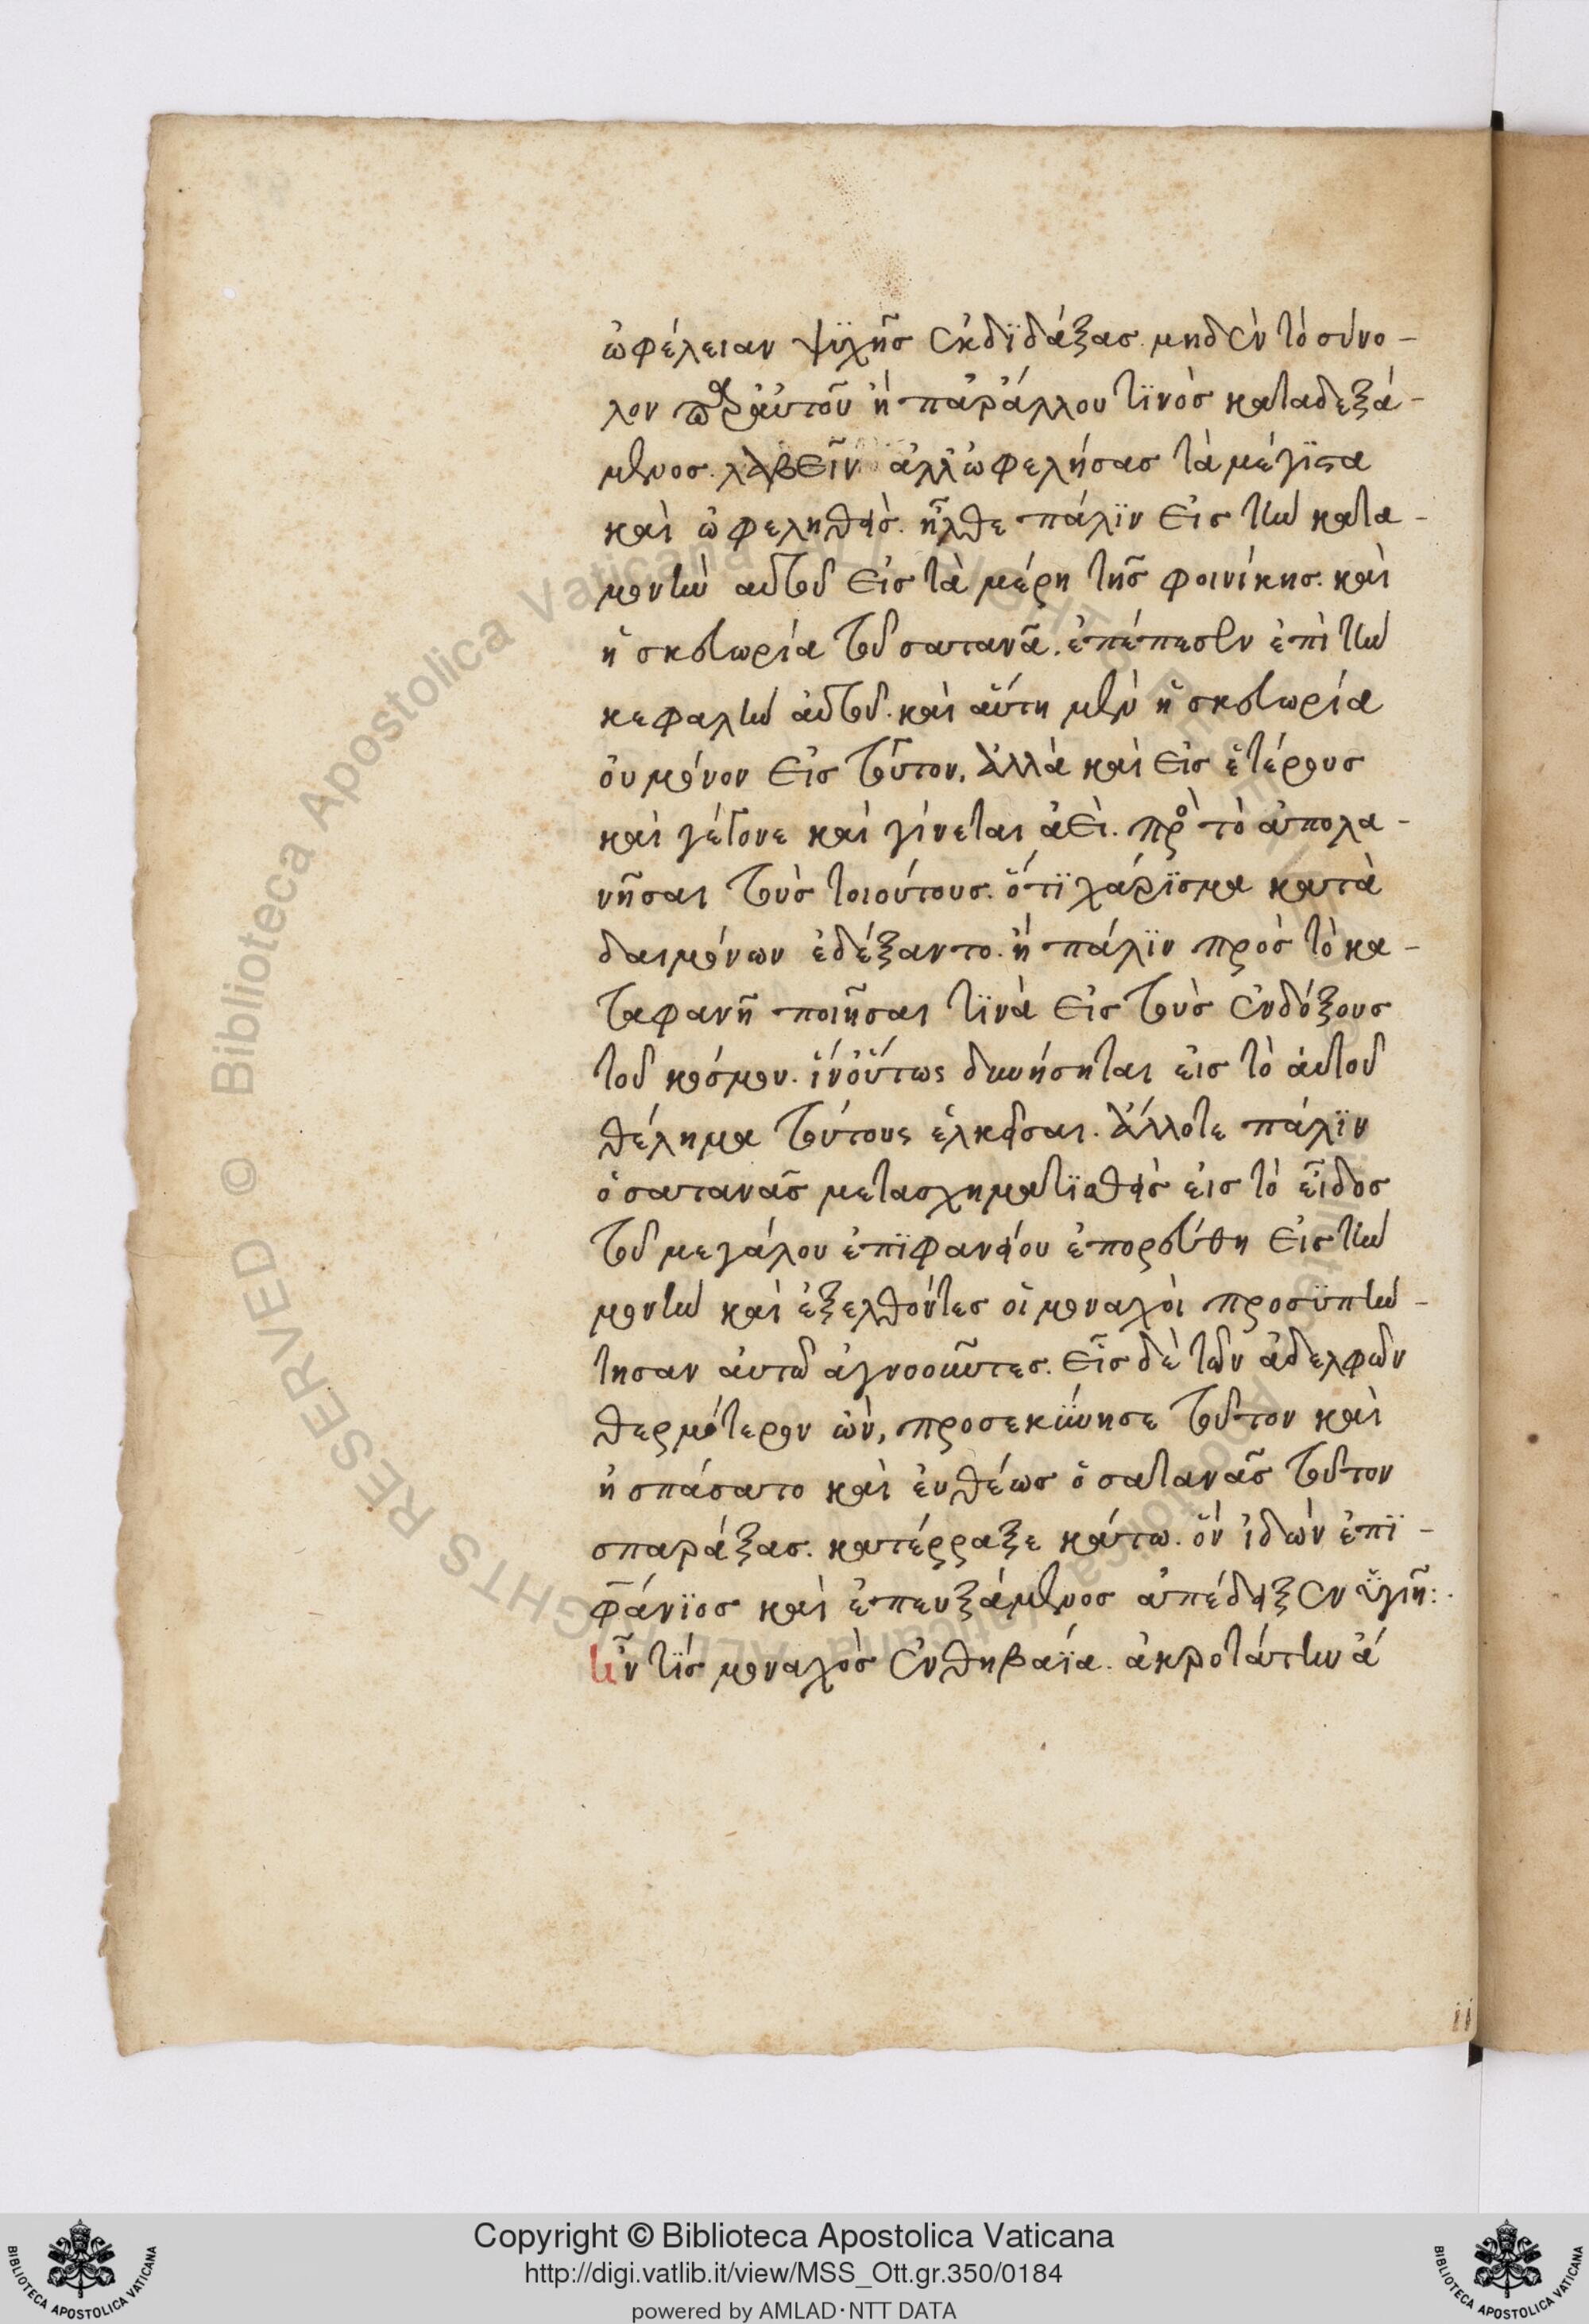 ὠφέλειαν ψϋχῆσ ἐκδϊδάξασ. μηδὲν τὸ σύνο-
λον παρ' ἀυτοῦ ἢ παρ' ἄλλου τϊνὸσ καταδεξά-
μενοσ. λαβεῖν ἀλλ' ὠφελήσασ τὰ μέγϊστα
καὶ ὠφεληθεὶσ. ἦλθε πάλϊν εἰσ τὴν κατα-
μονὴν αὐτοῦ εἰσ τὰ μέρη τῆσ φοινίκησ. καὶ
ἡ σκευωρία τοῦ σατανᾶ. ἐπέπεσεν ἐπὶ τὴν
κεφαλὴν ἀυτοῦ. καὶ ἅυτη μὲν ἡ σκευωρία
ὀυ μόνον εἰσ τοῦτον, ἀλλὰ καὶ εἰσ ἑτέρουσ
καὶ γέγονε καὶ γίνεται ἀεὶ. πρὸς τὸ ἀποπλα-
νῆσαι τοὺσ τοιούτουσ. ὅτϊ χάρϊσμα κατὰ
δαιμόνων ἐδέξαντο. ἢ πάλϊν πρὸσ τὸ κα-
ταφανῆ ποιῆσαι τϊνὰ εἰσ τοὺσ ἐνδόξουσ
τοῦ κόσμου. ἵν' ὅυτως δυνήσηται εἰσ τὸ ἀυτοῦ
θέλημα τούτους ἑλκῦσαι. ἄλλοτε πάλϊν
ὁ σατανᾶσ μετασχηματϊσθεὶσ εἰσ τὸ εἶδοσ
τοῦ μεγάλου ἐπϊφανείου ἐπορεύθη εἰσ τὴν
μονὴν καὶ ἐξελθόντεσ οἱ μοναχὸι προσϋπήν-
τησαν ἀυτῶ ἀγνοοῦντεσ. εἷσ δὲ τῶν ἀδελφῶν
θερμότερον ὢν, προσεκϋνησε τοῦτον καὶ
ἠσπάσατο καὶ ἐυθέωσ ὁ σατανᾶσ τοῦτον
σπαράξασ. κατέρραξε κάτω. ὃν ἰδὼν ἐπϊ-
φάνϊοσ καὶ ἐπευξάμενοσ ἀπέδειξεν ὑγιῆ:.
ἦν τϊσ μοναχὸσ ἐν θηβαΐα. ἀκροτάτην ἀ
ii
Copyright © Biblioteca Apostolica Vaticana
http://digi.vatlib.it/view/MSS_Ott.gr.350/0184
powered by AMLAD·NTT DATA